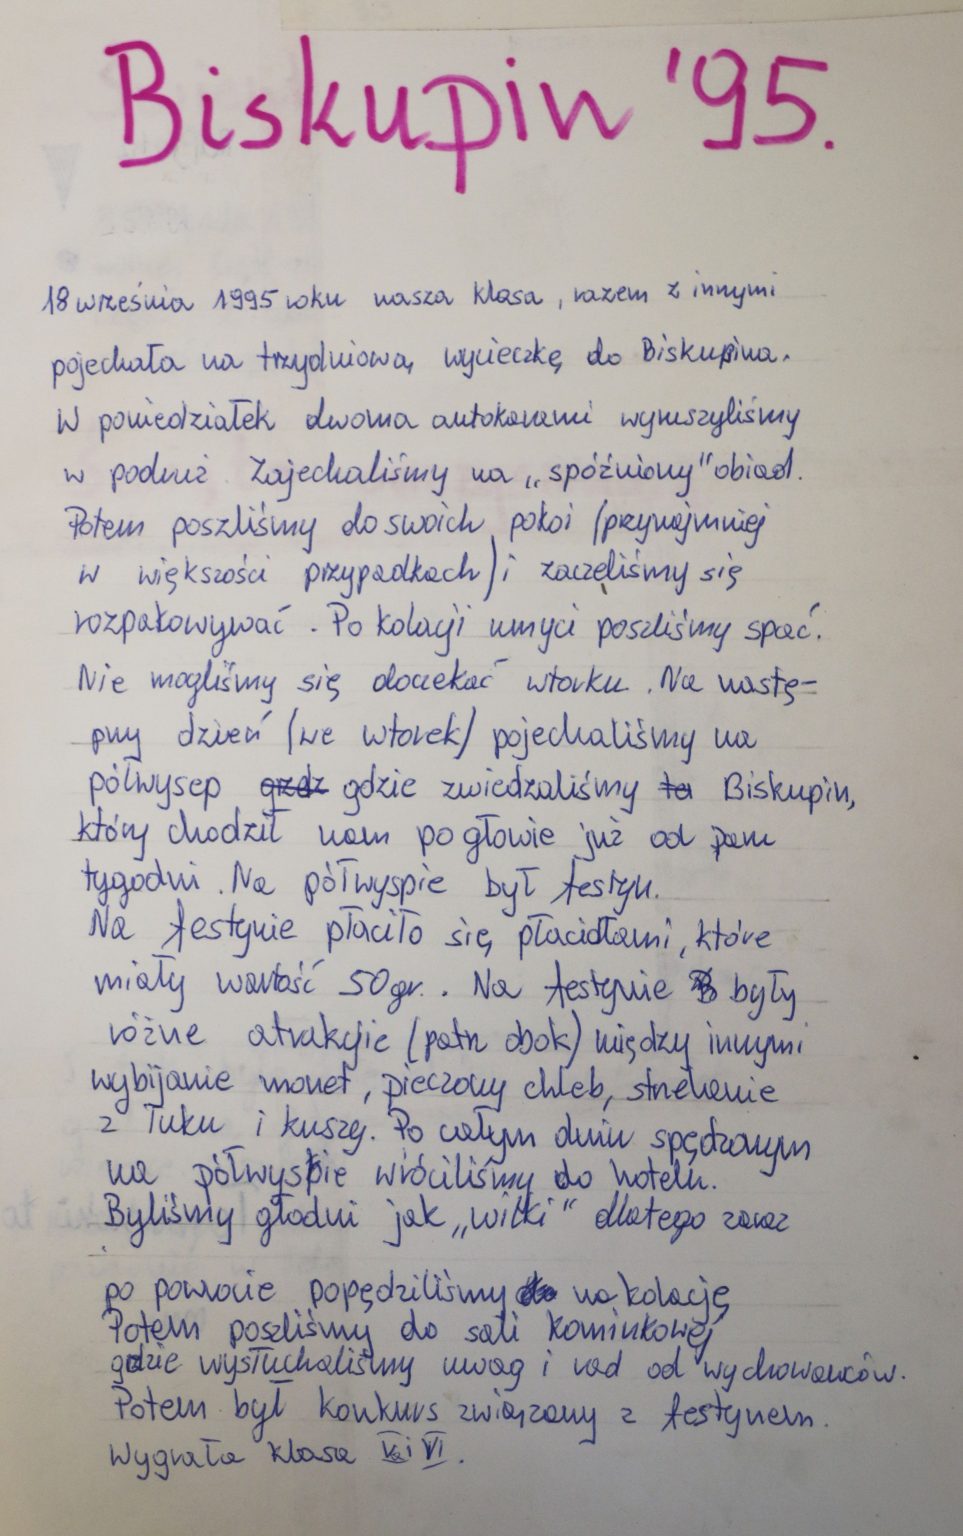 Biskupin '95.
18 września 1995 roku nasza klasa, razem z innymi
pojechała na trzydniową wycieczkę do Biskupina.
W poniedziałek dwoma autokarami wyruszyliśmy
w podruż Zajechaliśmy na „spóźniony" obiad.
Potem poszliśmy do swoich pokoi (przynajmniej
w większości przypadkach) i zaczęliśmy się
rozpakowywać. Po kolacji umyci poszliśmy spać.
Nie mogliśmy się doczekać wtorku. Na nastę-
pny dzień (we wtorek) pojechaliśmy na
półwysep gdzie zwiedzaliśmy Biskupin,
który chodził nam po głowie już od paru
tygodni. Na półwyspie był festyn.
Na festynie płaciło się płacidłami, które
miały wartość 50gr. . Na festynie były
różne atrakcje (patrz obok) między innymi
wybijanie monet, pieczony chleb, strzelanie
z łuku i kuszy. Po całym dniu spędzonym
na półwyspie wróciliśmy do hotelu.
Byliśmy głodni jak „wilki" dlatego zaraz
po powrocie popędziliśmy na kolację
Potem poszliśmy do sali kominkowej
gdzie wysłuchaliśmy uwag i rad od wychowawców.
Potem był konkurs związany z festynem.
Wygrała klasa Va i VI.